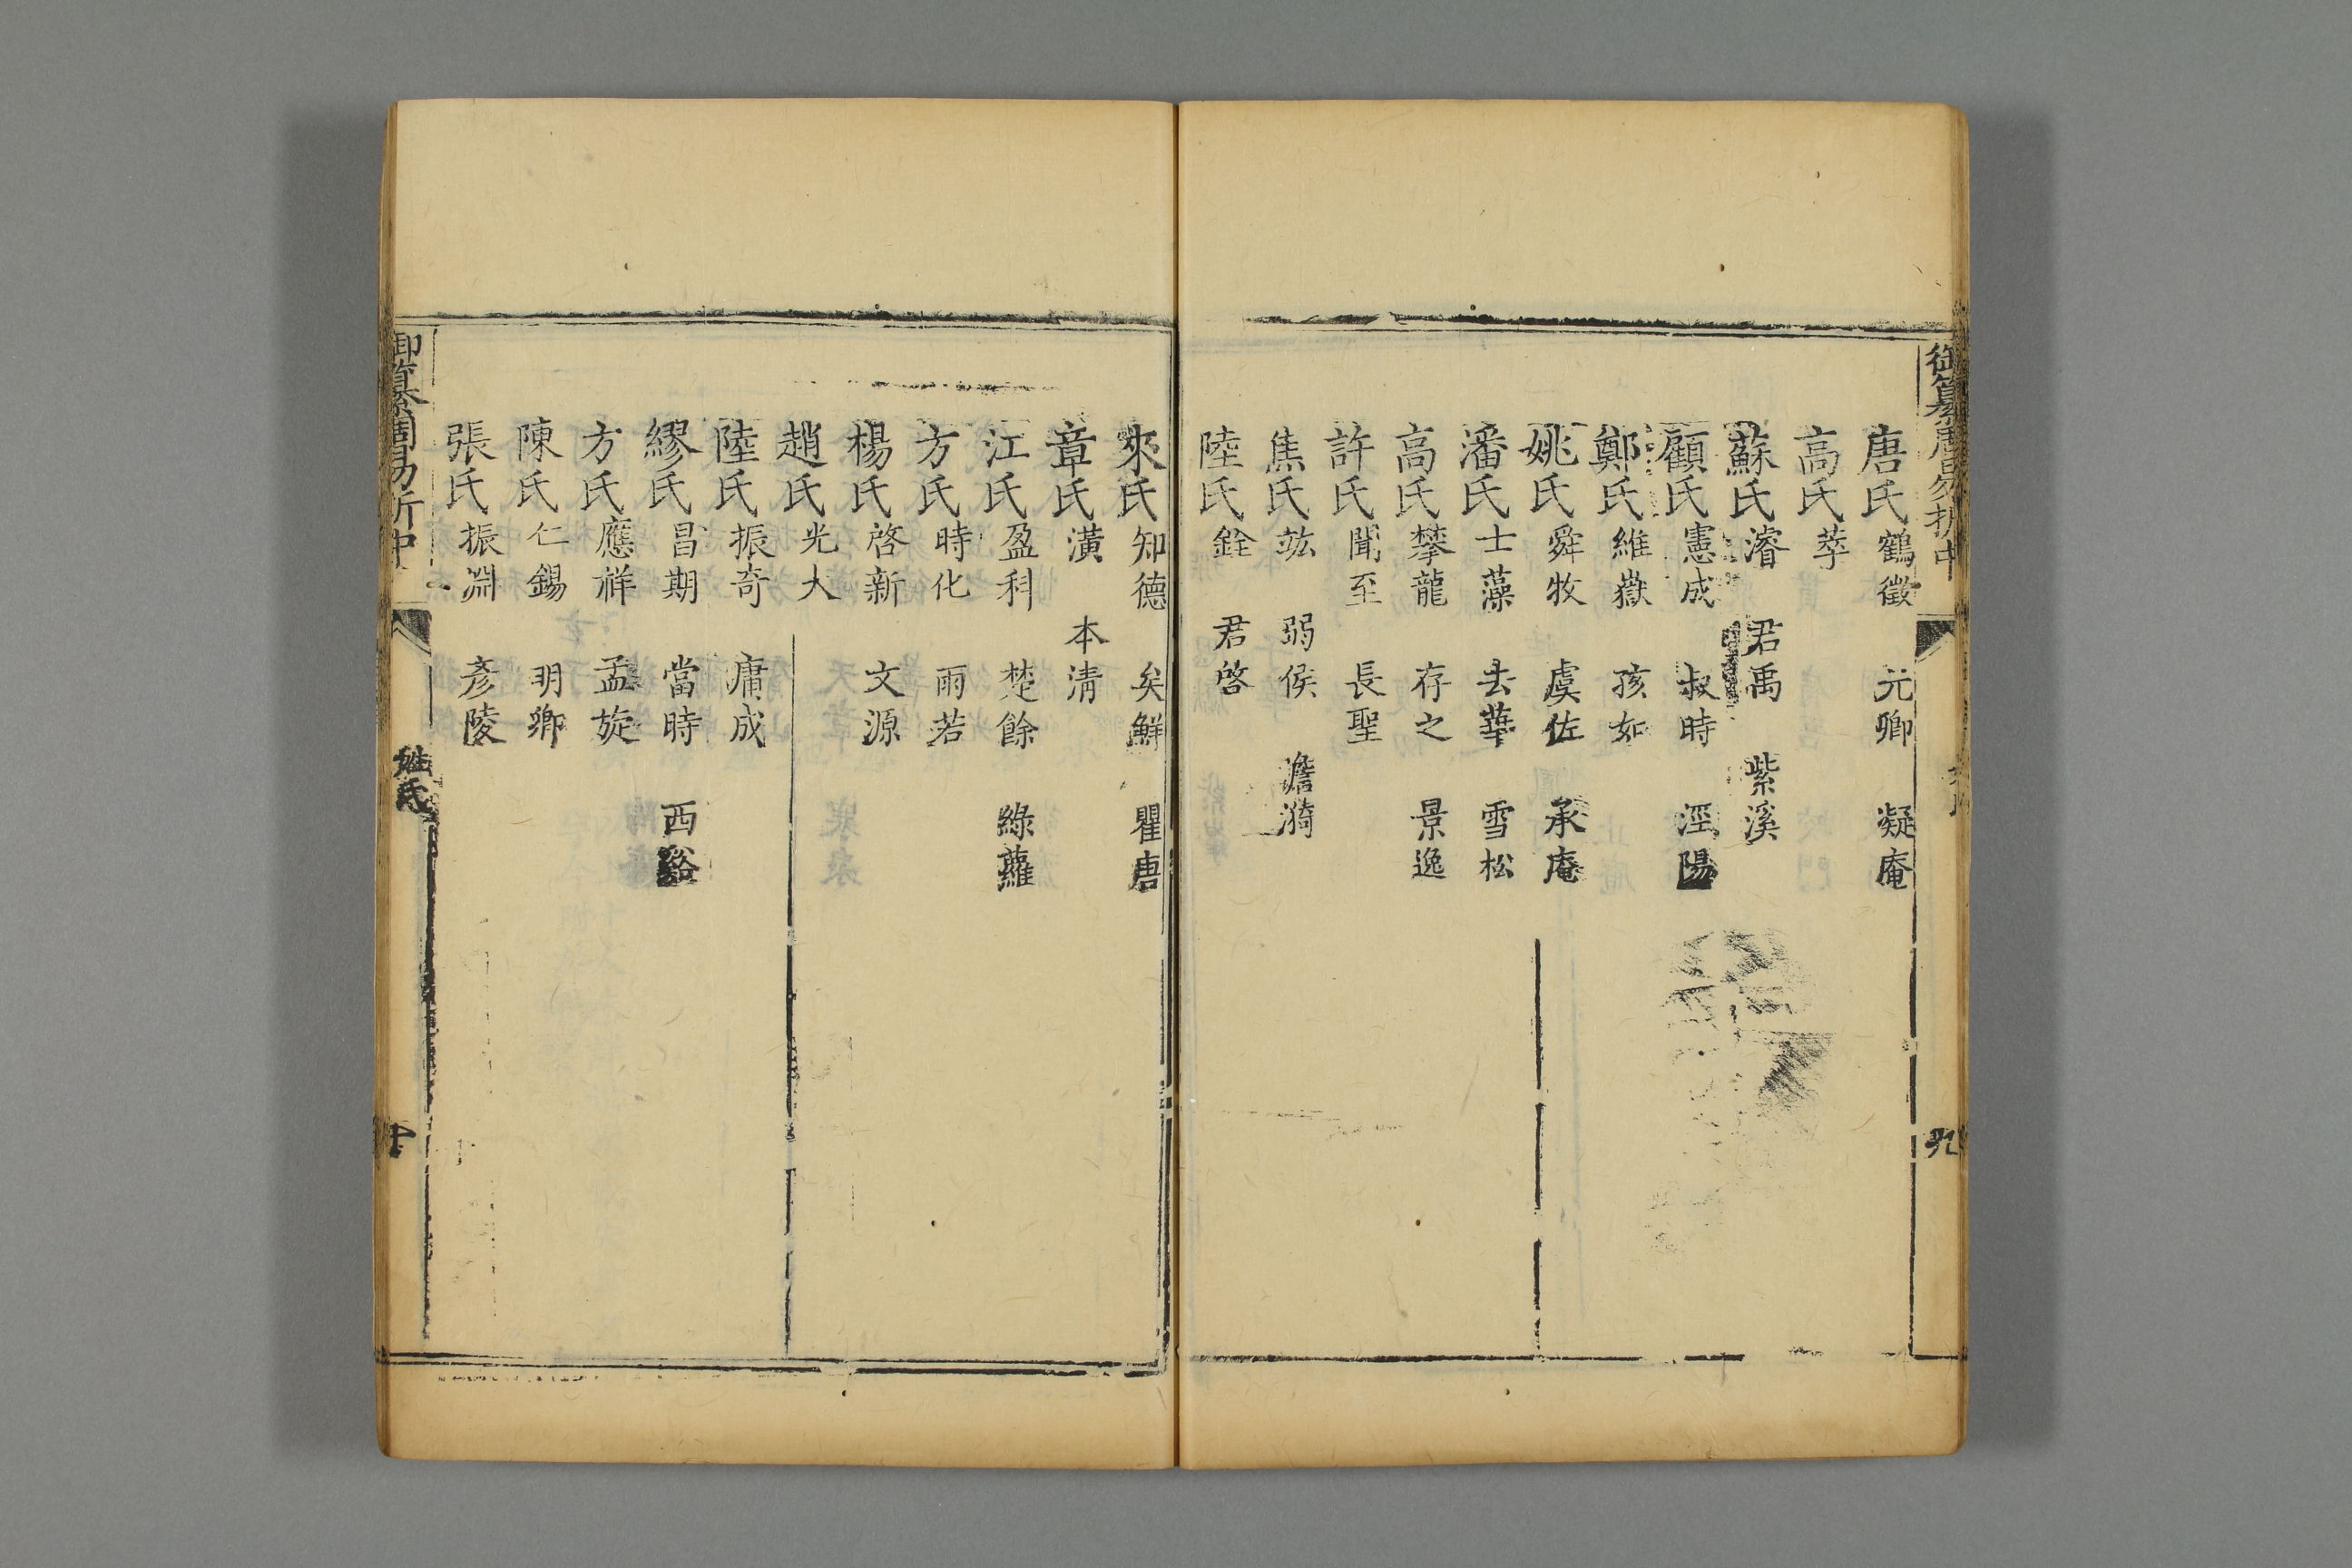 唐氏鶴徵　元卿　凝庵
高氏萃
蘇氏濬　君禹　紫溪
顧氏憲成　叔時　涇陽
鄭氏維嶽　孩如
姚氏舜牧　虞佐　承庵
潘氏士藻　去華　雪松
高氏攀龍　存之　景逸
許氏聞至　長聖
焦氏竑　弱侯　澹漪
陸氏銓　君啓
九
來氏知德　矣鮮　瞿唐
章氏潢　本清
江氏盈科　楚餘　綠蘿
方氏時化　雨若
楊氏啓新　文源
趙氏光大
陸氏振奇　庸成
繆氏昌期　當時　西谿
方氏應祥　孟旋
陳氏仁錫　明卿
張氏振淵　彥陵
御纂周易折中　姓氏　十